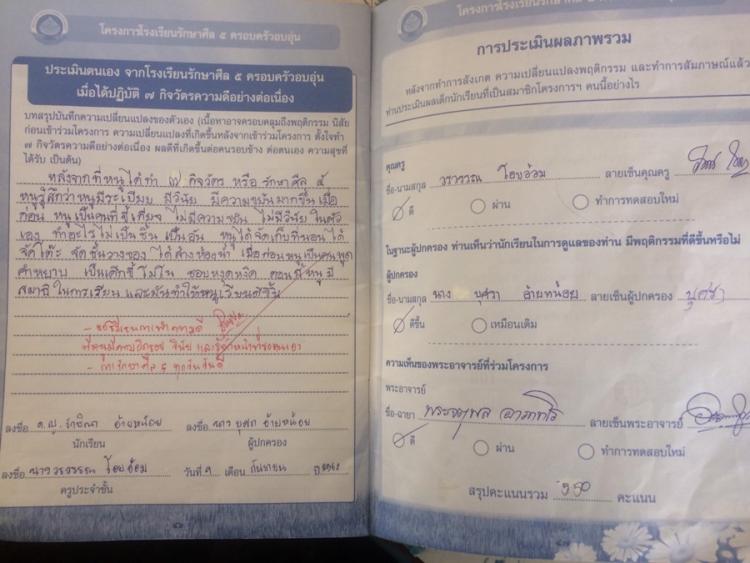 โครงการโรงเรียนรักษาศีล ๕ ครอบครัวอบอุ่น
ประเมินตนเอง จากโรงเรียนรักษาศีล ๕ ครอบครัวอบอุ่น
เมื่อได้ปฏิบัติ ๗ กิจวัตรความดีอย่างต่อเนื่อง
บทสรุปบันทึกความเปลี่ยนแปลงของตัวเอง (เนื้อหาอาจครอบคลุมถึงพฤติกรรม นิสัย
ก่อนเข้าร่วมโครงการ ความเปลี่ยนแปลงที่เกิดขึ้นหลังจากเข้าร่วมโครงการ ตั้งใจทำ
๗ กิจวัตรความดีอย่างต่อเนื่อง ผลดีที่เกิดขึ้นต่อคนรอบข้าง ต่อตนเอง ความสุขที่
ได้รับ เป็นต้น)
หลังจากที่หนูได้ทำ ๗ กิจวัตร หรือ รักษาศีล ๕
หนูรู้สึกว่าหนูมีระเบียบ มีวินัย มีความขยันมากขึ้น เมื่อ
ก่อน หนูเป็นคนที่ขี้เกียจ ไม่มีความขยัน ไม่มีวินัย ในตัว
เอง ทำอะไรไม่เป็นชิ้น เป็นอัน หนูได้จัดเก็บที่นอน ได้
จัดโต๊ะ จัดชั้นวางของ ได้ล้างห้องน้ำ เมื่อก่อนหนูเป็นคนพูด
คำหยาบ เป็นเด็กขี้โมโห ชอบหงุดหงิด ตอนนี้หนูมี
สมาธิ ในการเรียน และมันทำให้หนูเรียนดีขึ้น
วินัย และรู้หน้าที่ของตนเอง
รักษาศีล ๕ ทุกวัน
ลงชื่อ ด.ญ. อ้ายหน้อย ลงชื่อ นาง บุศรา อ้ายหน้อย
นักเรียน ผู้ปกครอง
ลงชื่อ นาง วรวรรณ โอบอ้อม วันที่ ๑ เดือน กันยายน ปี
ครูประจำชั้น
โครงการโรงเรียนรักษาศีล ๕
การประเมินผลภาพรวม
หลังจากทำการสังเกต ความเปลี่ยนแปลงพฤติกรรม และทำการสัมภาษณ์แล้ว
ท่านประเมินผลเด็กนักเรียนที่เป็นสมาชิกโครงการฯ คนนี้อย่างไร
คุณครู
ชื่อ-นามสกุล วรวรรณ โอบอ้อม ลายเซ็นคุณครู
ดี ผ่าน ทำการทดสอบใหม่
ในฐานะผู้ปกครอง ท่านเห็นว่านักเรียนในการดูแลของท่าน มีพฤติกรรมที่ดีขึ้นหรือไม่
ผู้ปกครอง
ชื่อ-นามสกุล นาง บุศรา อ้ายหน้อย ลายเซ็นผู้ปกครอง บุศรา
ดีขึ้น เหมือนเดิม
ความเห็นของพระอาจารย์ที่ร่วมโครงการ
พระอาจารย์
ชื่อ-ฉายา ลายเซ็นพระอาจารย์
ดี ผ่าน ทำการทดสอบใหม่
สรุปคะแนนรวม คะแนน